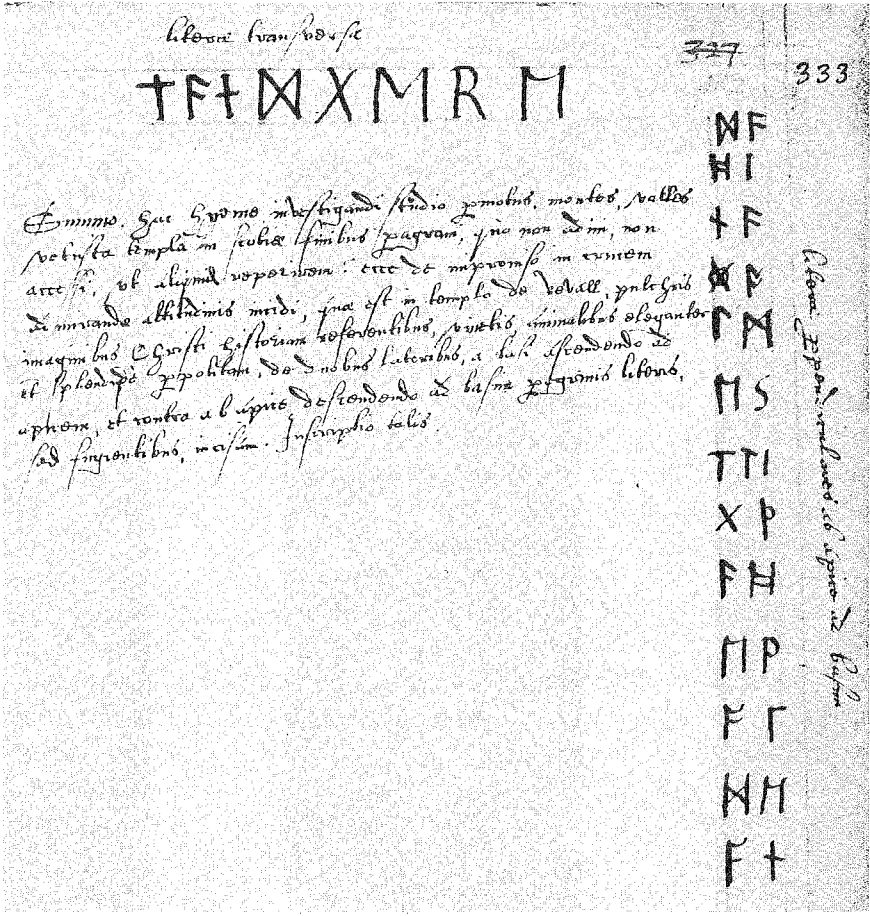 literæ transversæ
ᛏᚨᚾᛞᚷᛖᚱᛖ
337
333
hac hyeme investigandi studio pmotus, montes, valles
vetusta templa in scotiæ finibus pagravi, quo non adivi, non
accessi, ut aliquid reperirem: ecce de improviso in crucem
admirandæ altitudinis incidi, quæ est in templo de revall, pulchris
imaginibus Christi historiam referentibus, vinetis, animalibus eleganter
et splendide ppolitam, de duobus lateribus, a basi ascendendo ad
apicem, et contra ab apice descendendo ad basim pegrinis literis,
sed fugientibus, incisam. Inscriptio talis.
ᛞᚨ
ᚻᛁ
ᚾᚨ
ᚨ
ᛚᛗ
ᛖᛋ
ᛏᛏᛁ
ᚷᚦ
ᚨᚻ
ᛖᚹ
ᚨᛚ
ᛞᛖ
ᚨᚾ
literæ ppendiculares ab apice ad basim